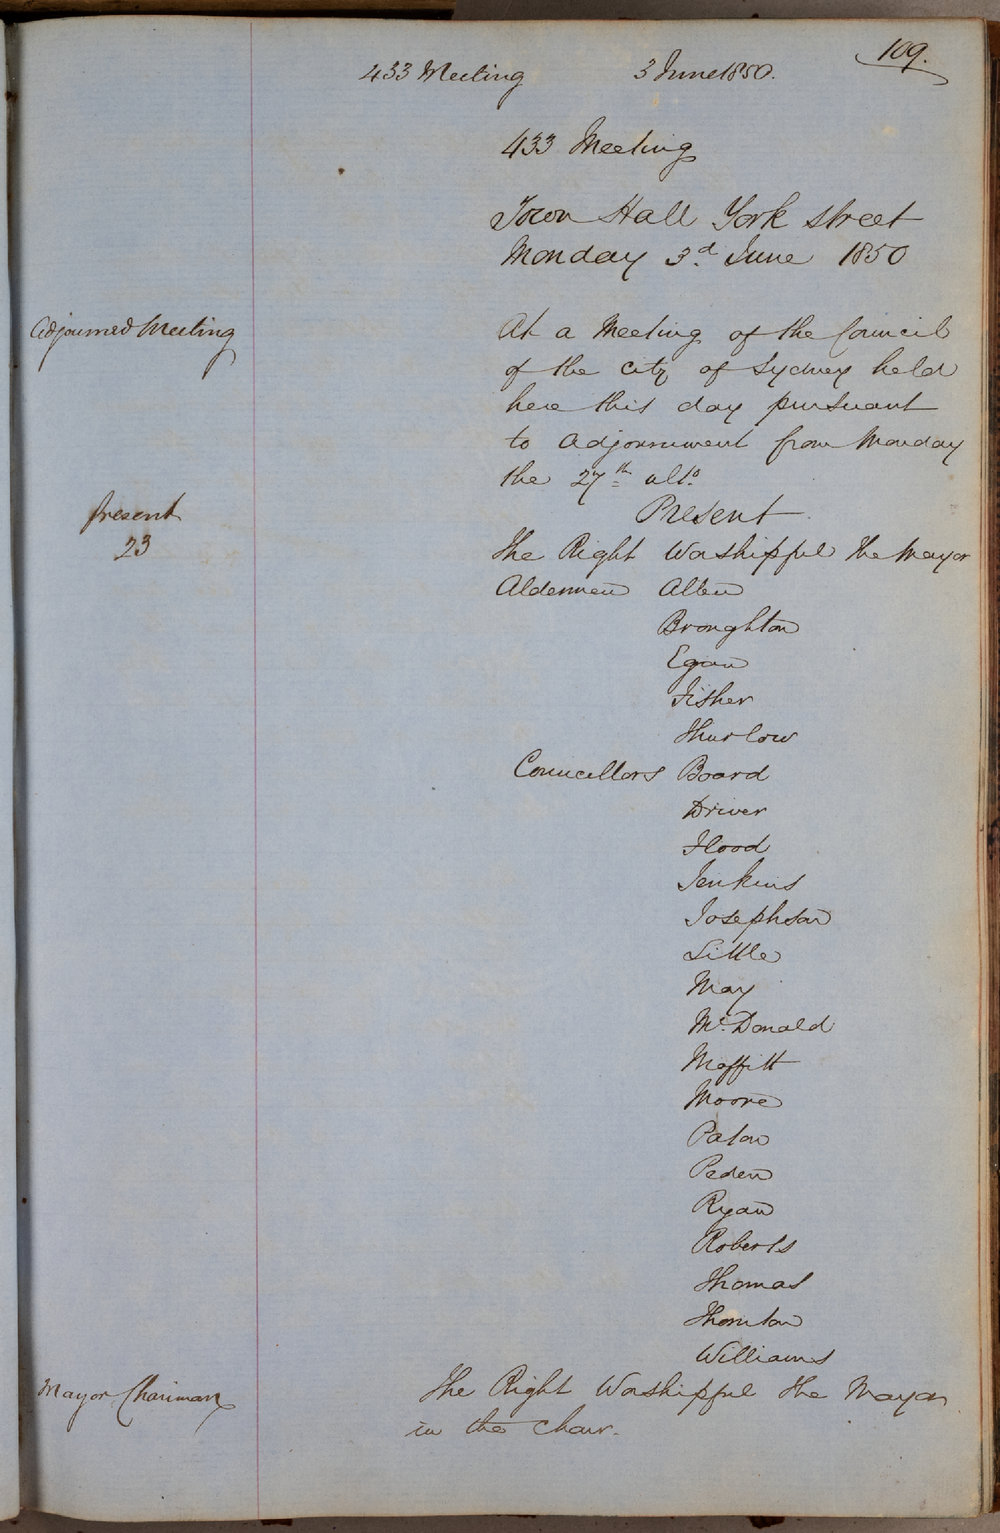 109.
433 Meeting 3 June 1850.
433 Meeting
Town Hall York street
Monday 3d. June 1850
Adjourned Meeting
At a Meeting of the Council
of the city of Sydney held
here this day pursuant
to adjournment from Monday
the 27th ulto.
Present
23
Present
the Right Worshipful the Mayor
Aldermen Allen
Broughton
Egan
Fisher
Thurlow
Councellors Board
Driver
Flood
Jenkins
Josephson
Little
May
Mc.Donald
Moffitt
Moore
Paton
Peden
Ryan
Roberts
Thomas
Thornton
Williams
Mayor Chairman
The Right Worshipful the Mayor
in the chair.